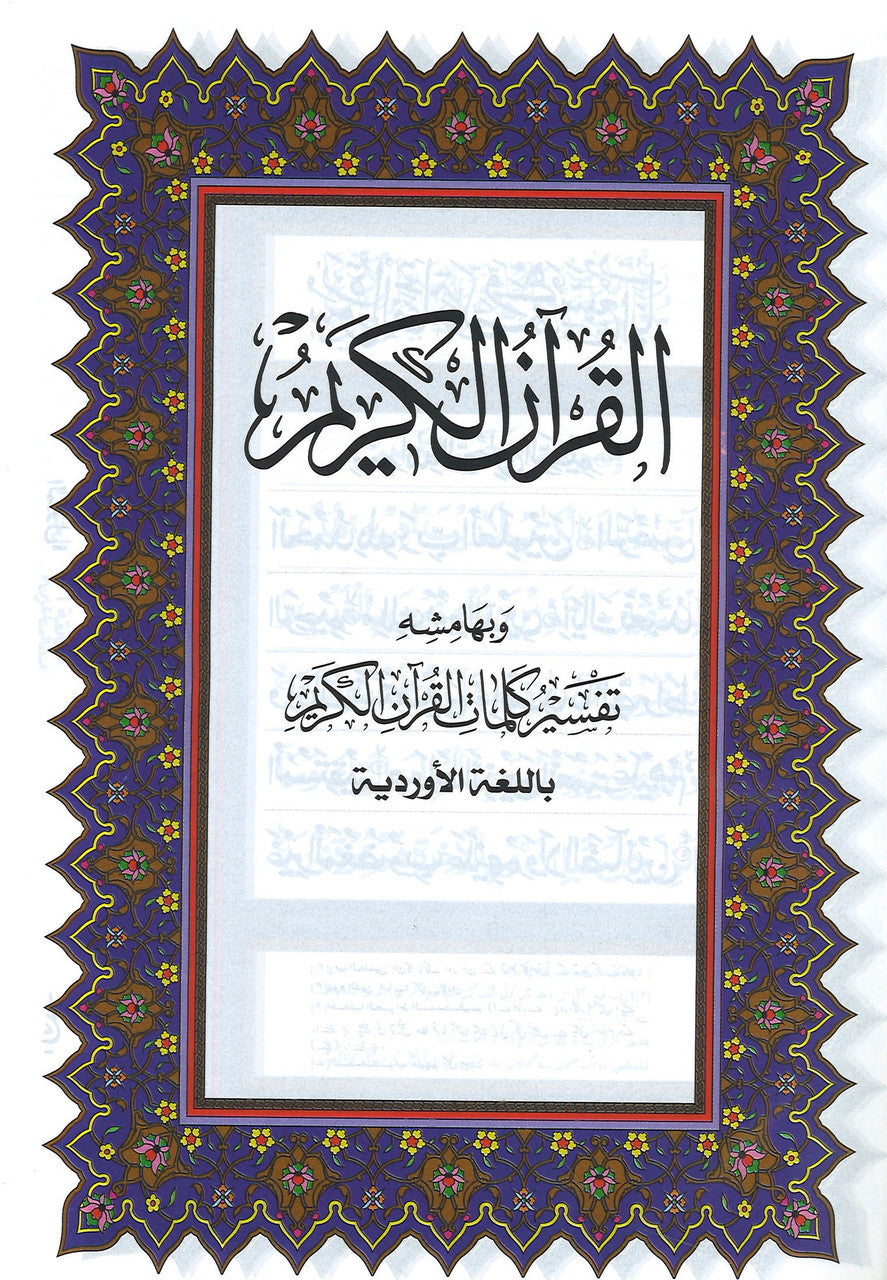 القُرْآنُ الْكَرِيْمُ
وَبِهَامِشِه
تَفْسِيْرُ كَلِمَاتِ القُرْآنِ الْكَرِيْمِ
باللغة الأوردية